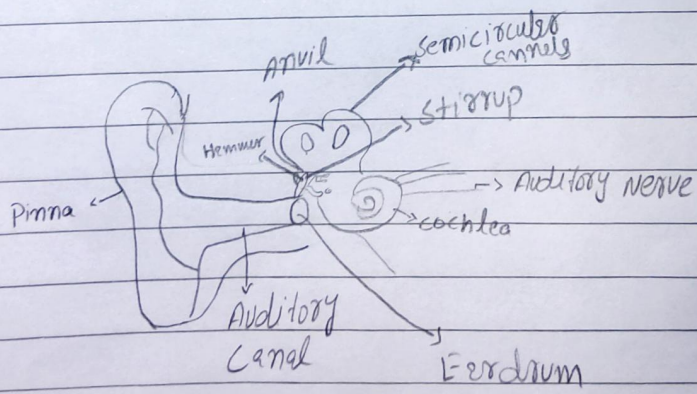 Semicirculer
cannels
Anvil
Stirrup
Hemmer
Auditory Nerve
Pinna
cochlea
Auditory
Canal
Eerdrum